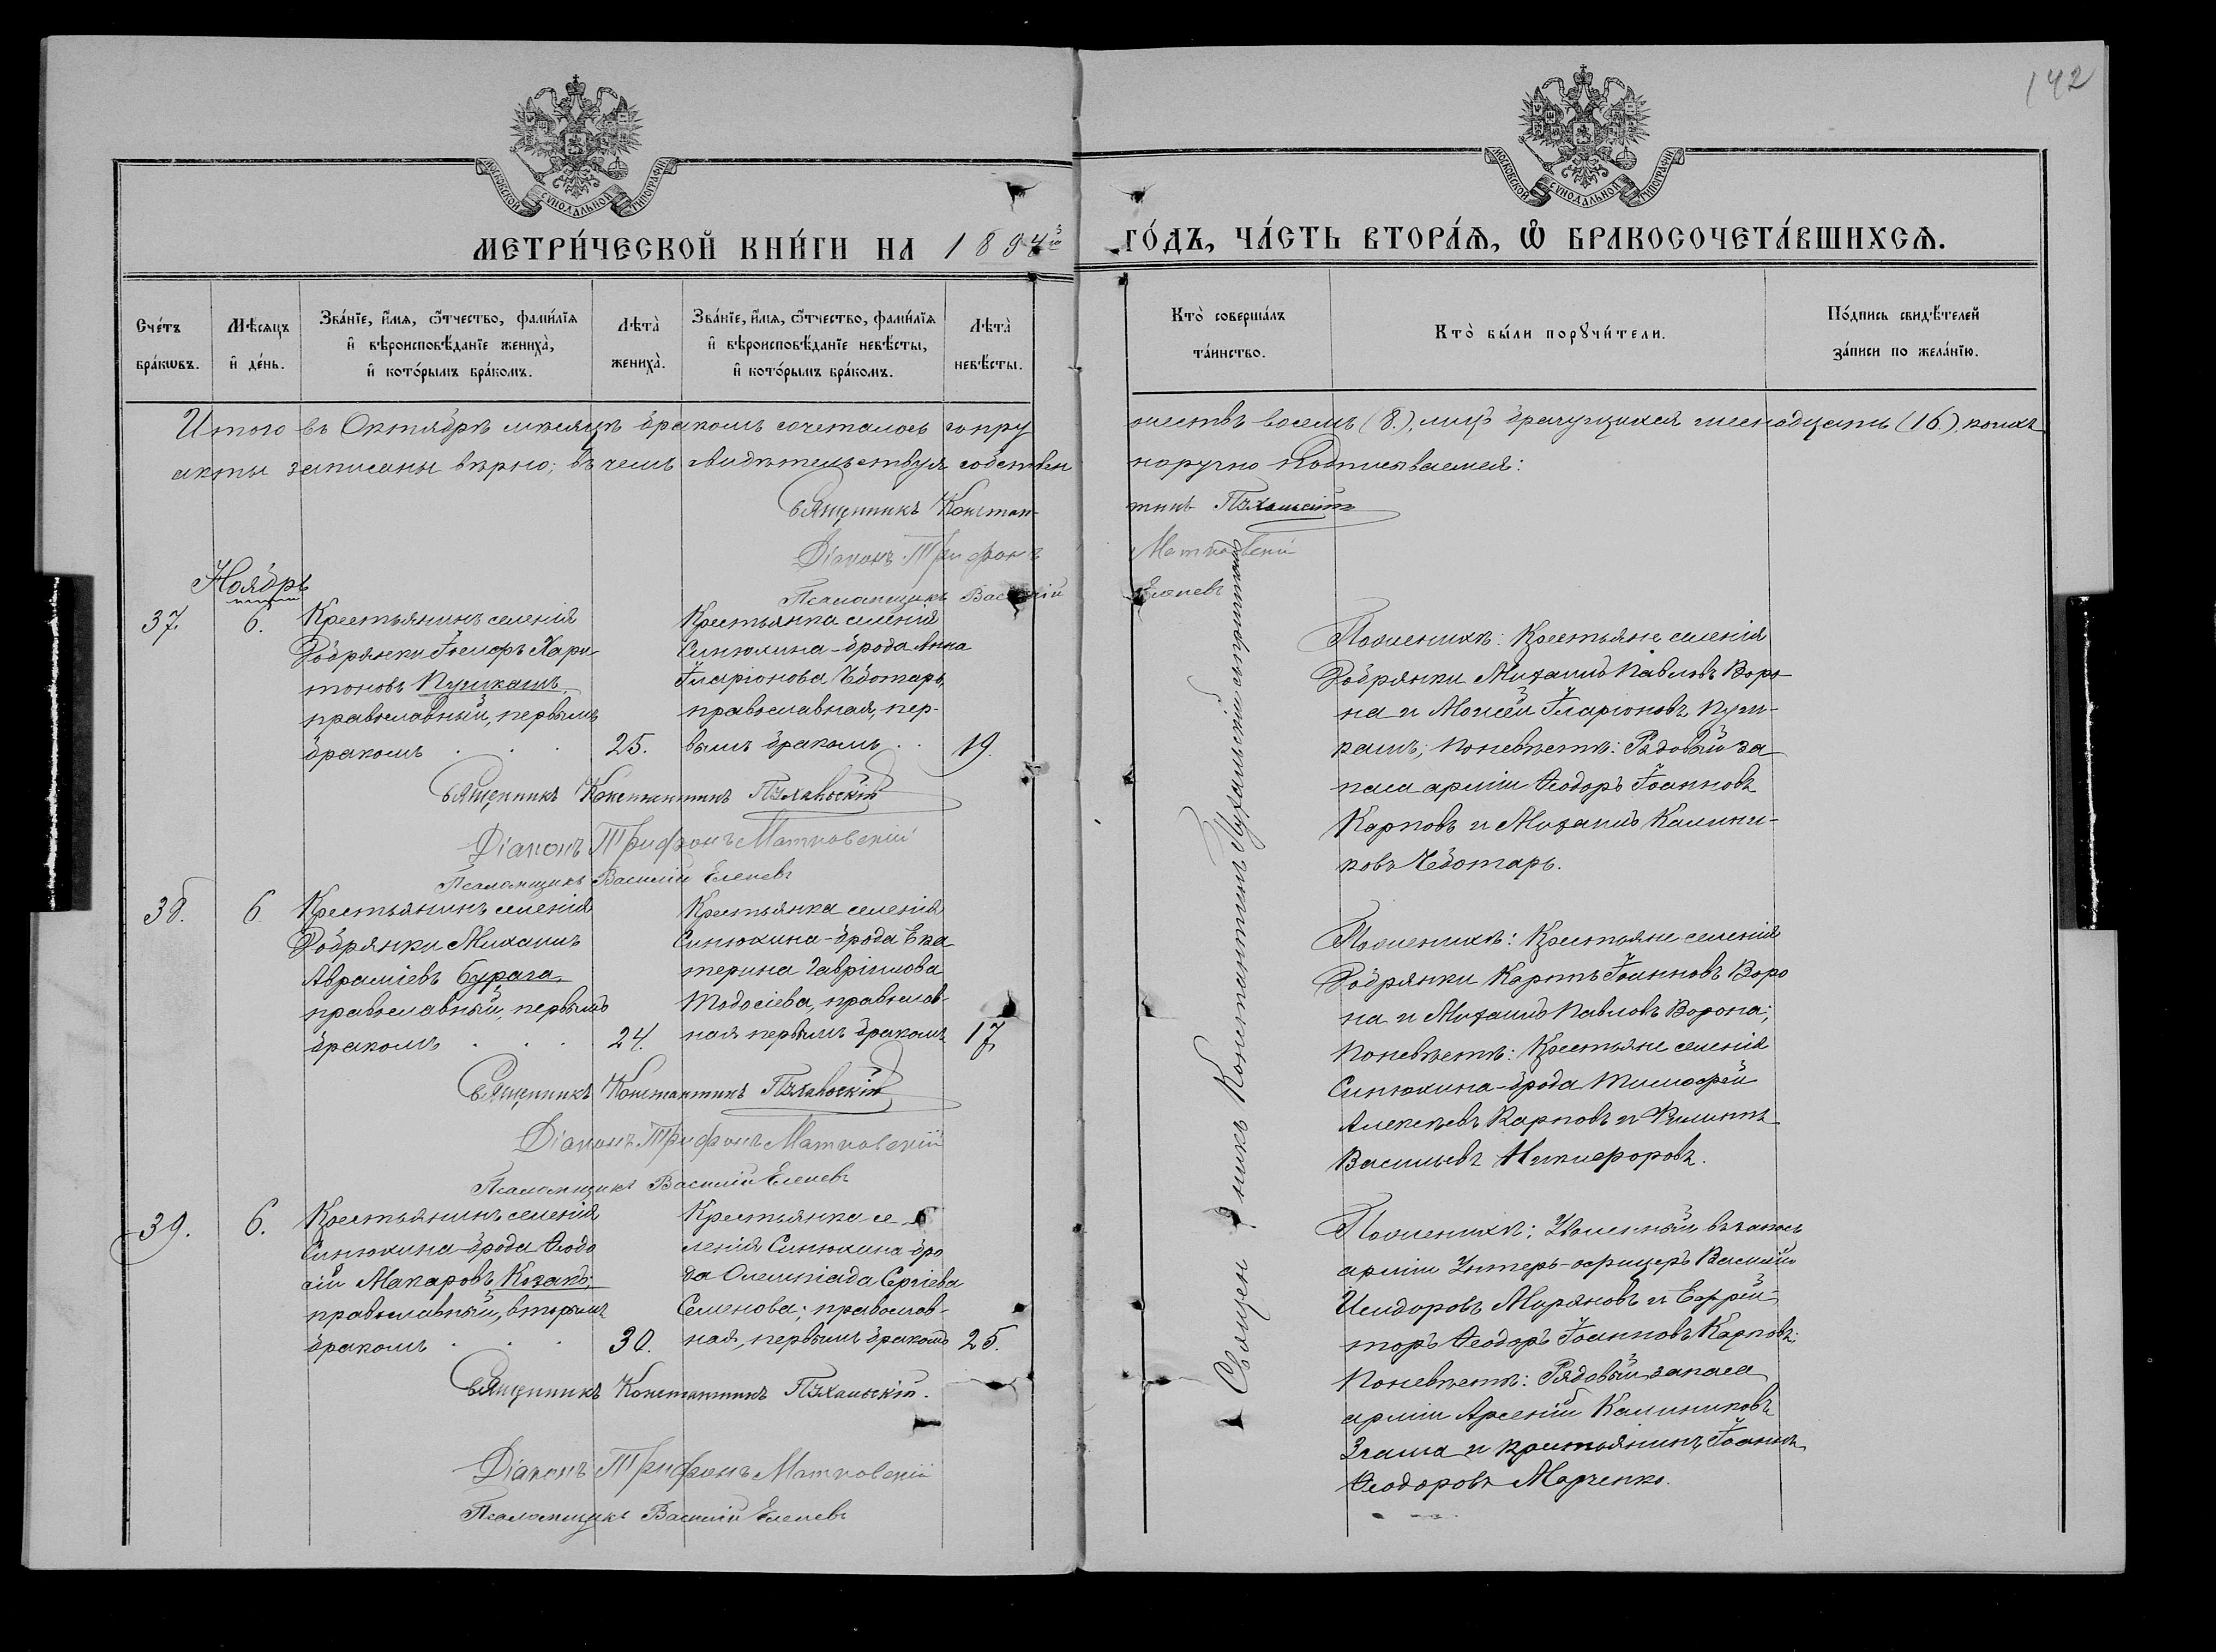 142
МОСКОВСКОЙ СѴНОДАЛЬНОЙ ТИПОГРАФІИ
МОСКОВСКОЙ СѴНОДАЛЬНОЙ ТИПОГРАФІИ
МЕТРИ́ЧЕСКОЙ КНИ́ГИ НА 1894й ГО́ДЪ, ЧА́СТЬ ВТОРА́Я, Ѡ҆ БРАКОСОЧЕТА́ВШИХСЯ.
Сче́тъ бра́кωвъ.
Мѣ́сяцъ и҆ де́нь.
Зва́нїе, и҆́мя, ѻ҆́тчество, фамѝлїя и҆ вѣроисповѣ́данїе жениха̀, и҆ кото́рымъ бра́комъ.
Лѣта̀ жениха̀.
Зва́нїе, и҆́мя, ѻ҆́тчество, фамѝлїя и҆ вѣроисповѣ́данїе невѣ́сты, и҆ кото́рымъ бра́комъ.
Лѣта̀ невѣ́сты.
Кто̀ соверша́лъ та́инство.
Кто̀ бы́ли порꙋчи́тели.
По́дпись свидѣ́телей за́писи по жела́нїю.
Итого въ Октябрѣ мѣсяцѣ бракомъ сочеталось супру
жествъ восемь (8.), лицъ брачущихся шеснадцать (16), коихъ
акты записаны вѣрно; въ чемъ свидѣтельствуя собствен
норучно подписываемся:
Священникъ Констан-
тинъ Пухальскій
Діаконъ Трифонъ
Матковскій
Псаломщикъ Василій
Еленевъ
Ноябрь
37.
6.
Крестьянинъ селенія
Добрянки Іосифъ Хари-
тоновъ Пушкашъ,
православный, первымъ
бракомъ . . .
25.
Крестьянка селенія
Синюхина-брода Анна
Іларіонова Чеботарь,
православная, пер-
вымъ бракомъ . .
19.
Поженихѣ: Крестьяне селенія
Добрянки Михаилъ Павловъ Воро-
на и Моисей Іларіоновъ Пуш-
кашъ; Поневѣстѣ: Рядовый за
паса арміи Ѳеодоръ Іоанновъ
Карповъ и Михаилъ Калини-
ковъ Чеботарь.
Священникъ Константинъ Пухальскій
Діаконъ Трифонъ Матковскій
Псаломщикъ Василій Еленевъ
38.
6
Крестьянинъ селенія
Добрянки Михаилъ
Авраміевъ Бурага,
православный, первымъ
бракомъ . . .
24.
Крестьянка селенія
Синюхина-брода Ека
терина Гавріилова
Тодосіева, православ-
ная первымъ бракомъ
17
Поженихѣ: Крестьяне селенія
Добрянки Карпъ Іоанновъ Воро
на и Михаилъ Павловъ Ворона;
Поневѣстѣ: Крестьяне селенія
Синюхина-брода Тимофей
Алексѣевъ Карповъ и Филиппъ
Васильевъ Никифоровъ.
Священникъ Константинъ Пухальскій
Діаконъ Трифонъ Матковскій
Псаломщикъ Василій Еленевъ
39.
6.
Крестьянинъ селенія
Синюхина-брода Ѳеодо
сій Макаровъ Козакъ;
православный, вторымъ
бракомъ . . .
30.
Крестьянка се
ленія Синюхина-бро
да Олемпіада Сергіева
Семенова; православ-
ная, первымъ бракомъ
25.
Поженихѣ: Уволенный въ запасъ
арміи Унтеръ-офицеръ Василій
Исидоровъ Маряновъ и Ефрей-
торъ Ѳеодоръ Іоанновъ Карповъ;
Поневѣстѣ: Рядовый запаса
арміи Арсеній Калиниковъ
Згама и крестьянинъ Іоаннъ
Ѳеодоровъ Марченко.
Священникъ Константинъ Пухальскій.
Діаконъ Трифонъ Матковскій
Псаломщикъ Василій Еленевъ
Священникъ Константинъ Пухальскій съ причтомъ